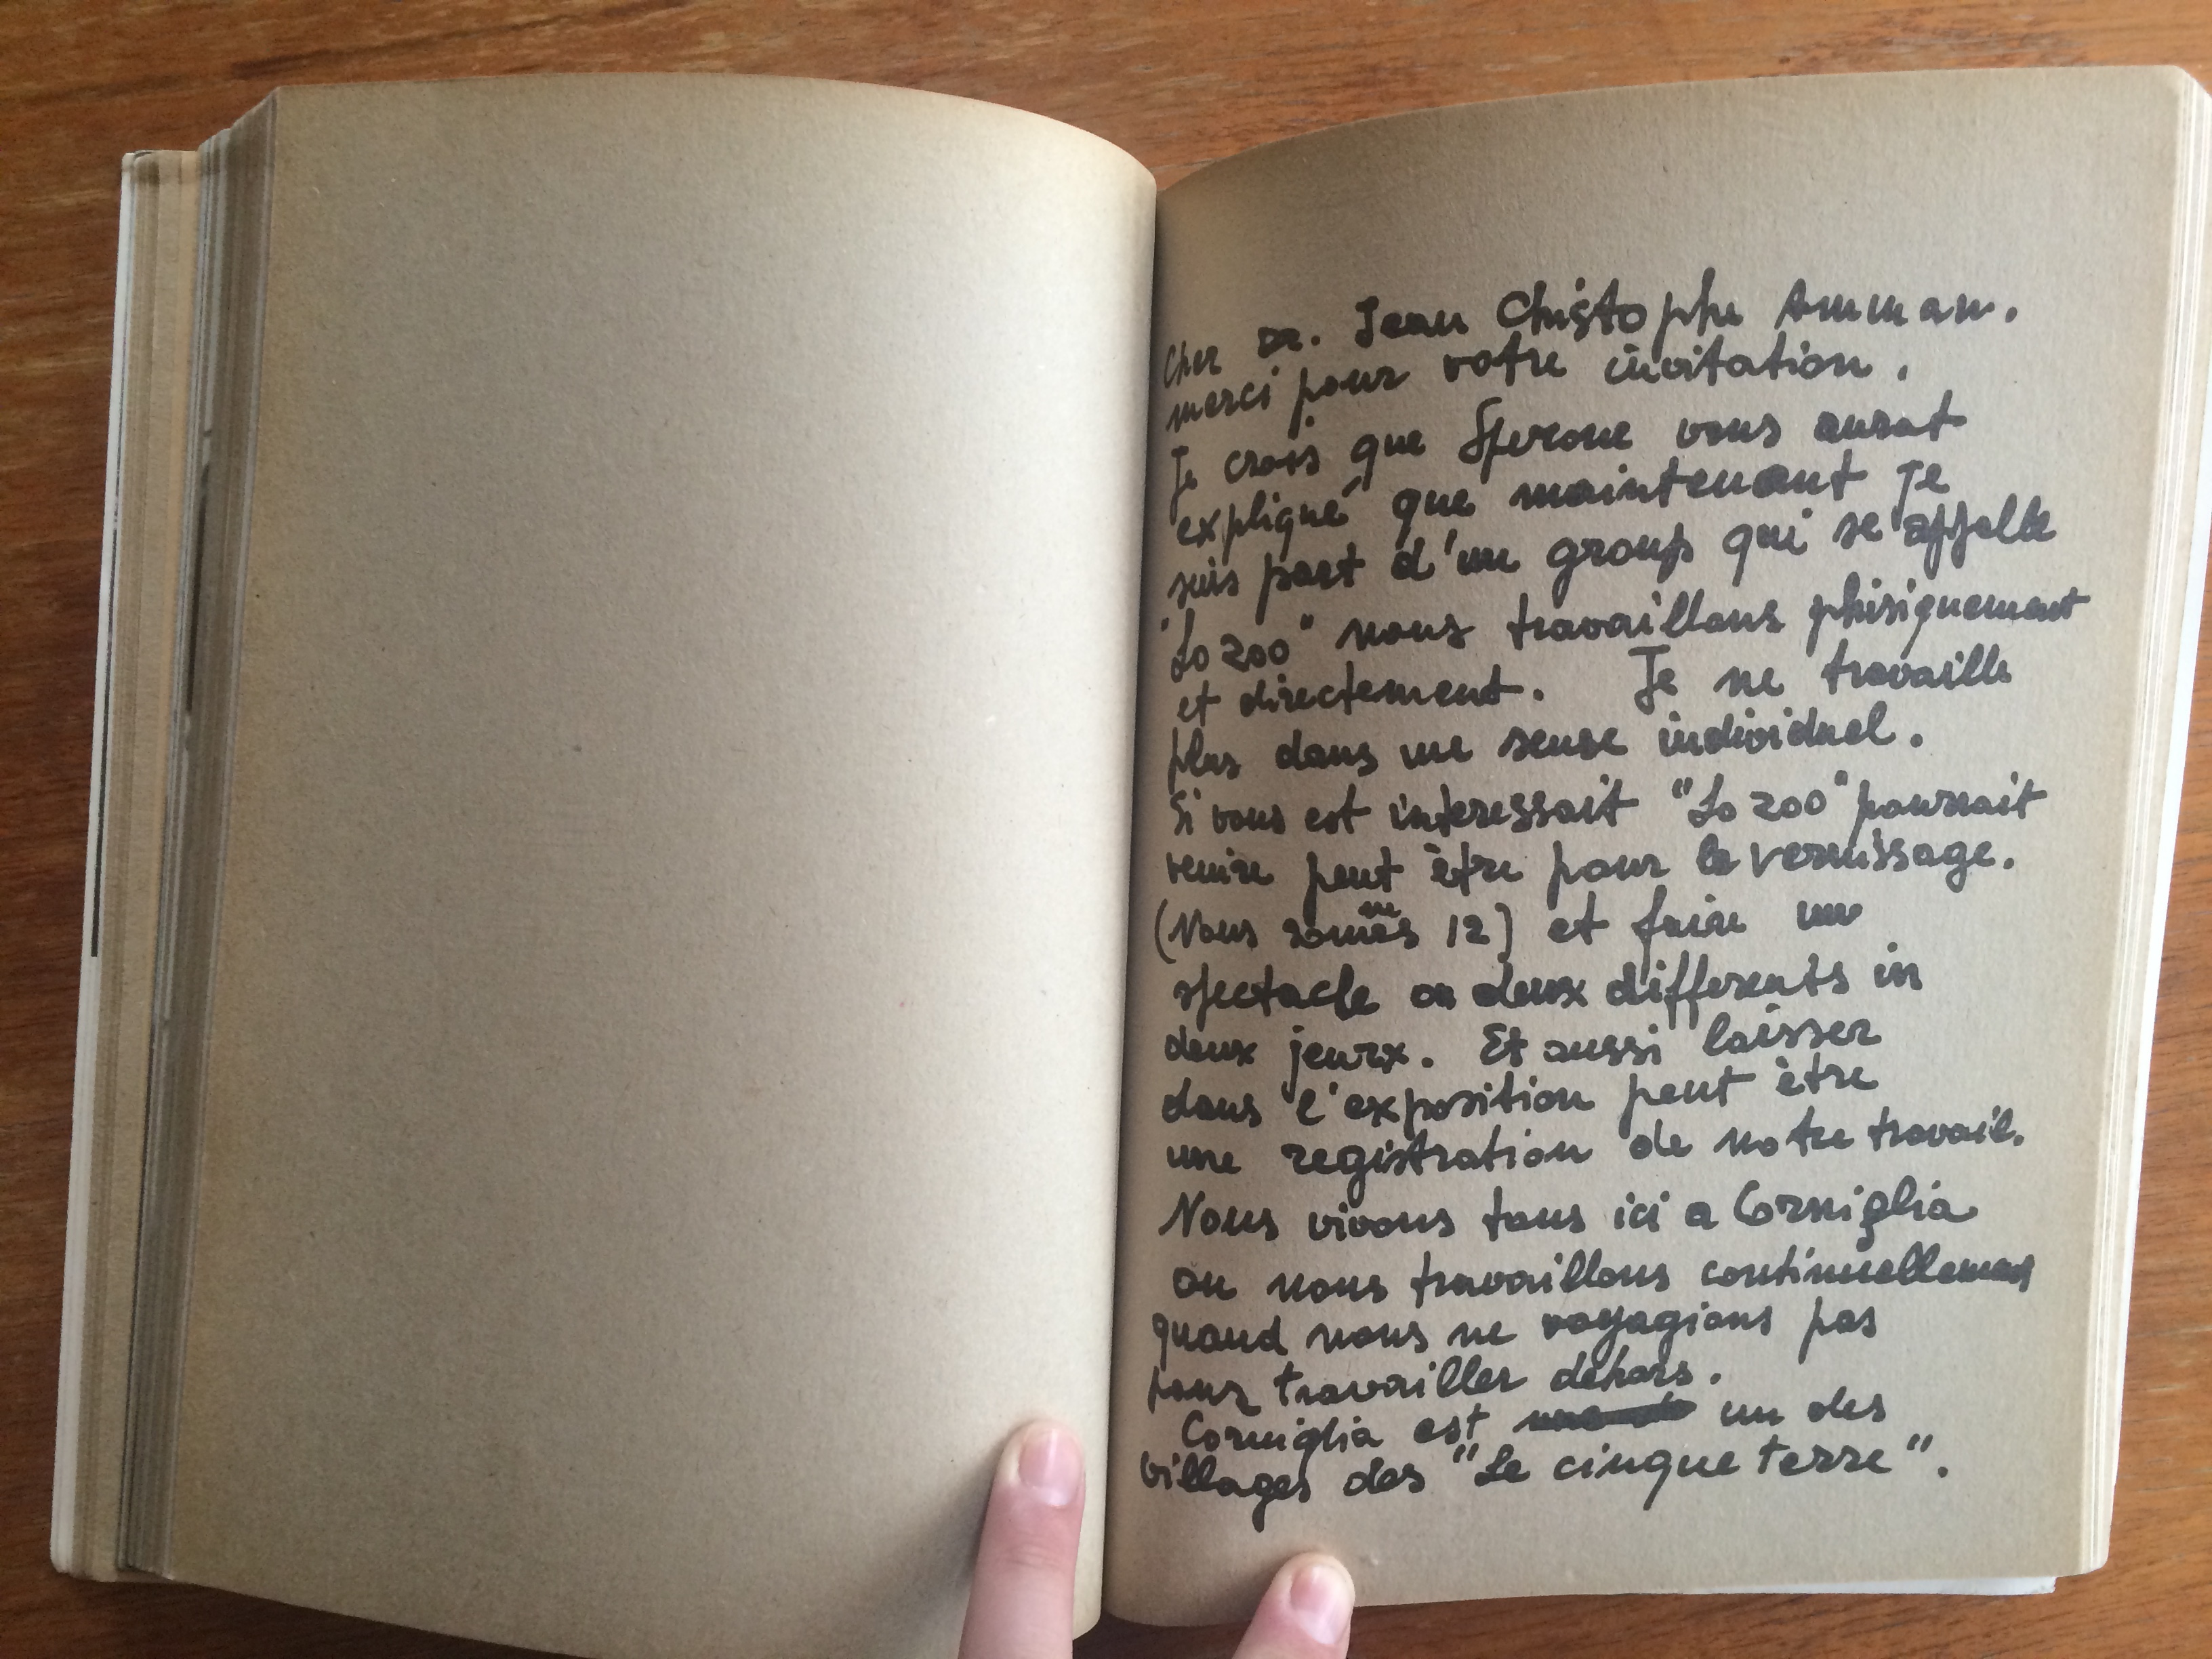 Cher Dr. Jean Chistophe Amman.
merci pour votre invitation.
Je crois que Sperone vous aurat
expliqué que maintenant je
suis part d'un group qui se appelle
"Lo zoo" nous travaillons phisiquement
et directement. Je ne travaille
plus dans un sense individuel.
Si vous est interessait "Lo zoo" pourrait
venire peut être pour le vernissage.
(Nous sommes 12) et faire un
spectacle ou deux differents in
deux jeurx. Et aussi laisser
dans l'exposition peut être
une registration de notre travail.
Nous vivons tous ici a Corniglia
ou nous travaillons continuellement
quand nous ne voyagions pas
pour travailler dehors.
Corniglia est un des
villages des "Le cinque terre".